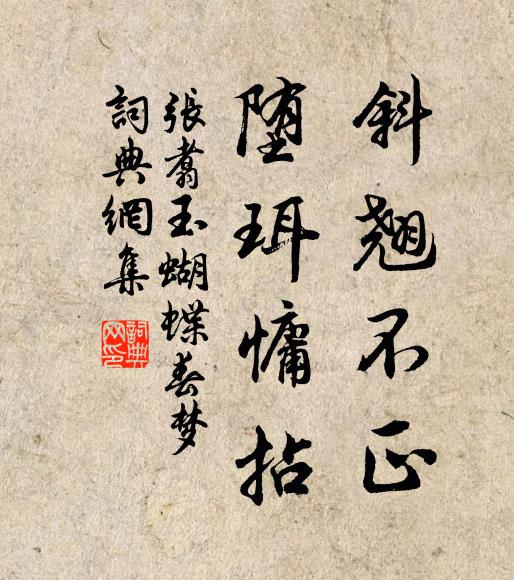 斜翹不正
墮珥慵拈
張翥玉蝴蝶春梦
詞典網集
詞典網印